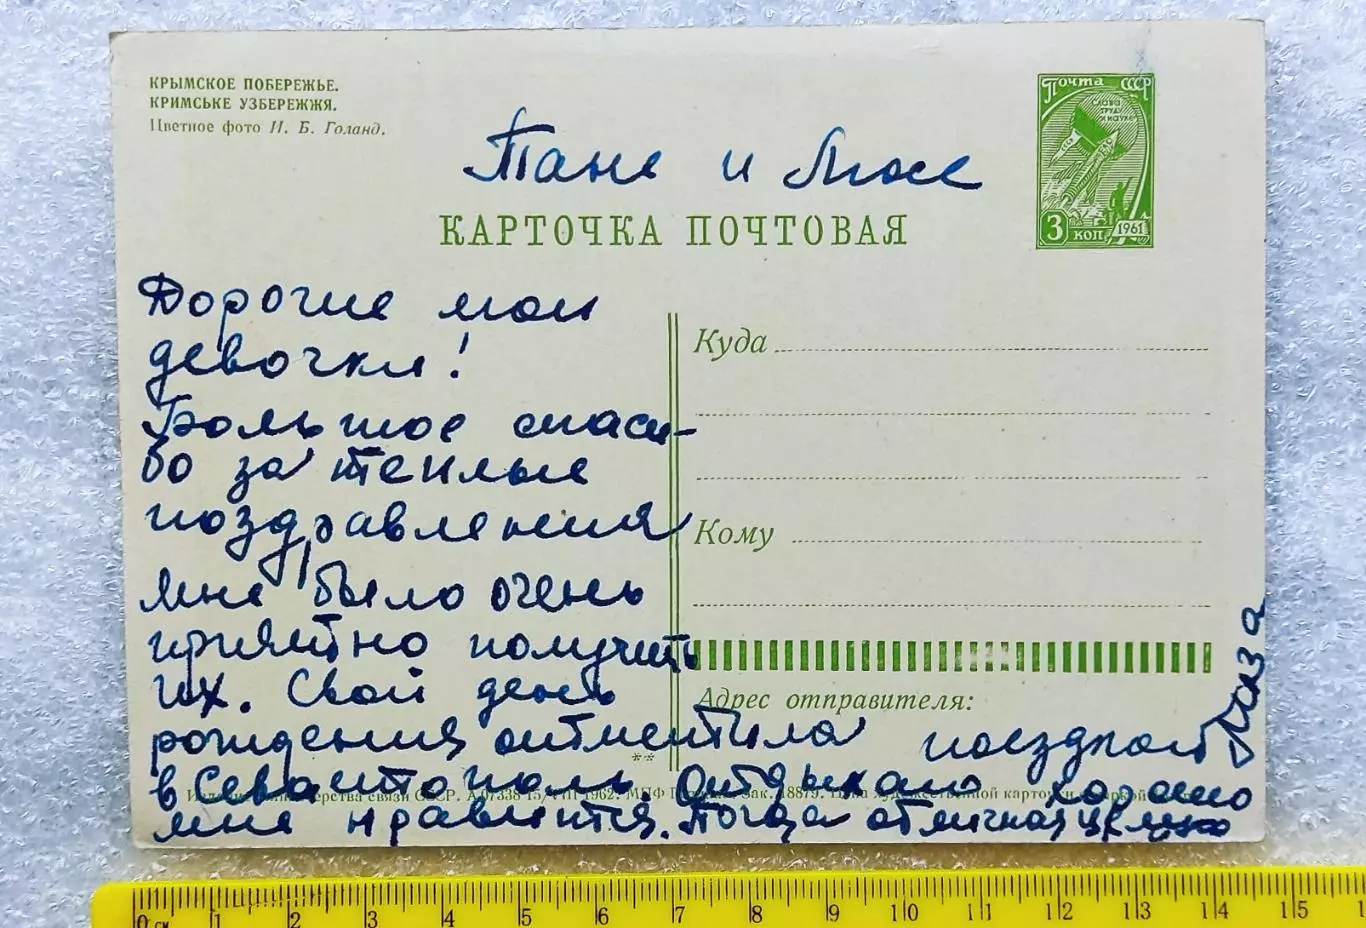 КРЫМСКОЕ ПОБЕРЕЖЬЕ.
КРИМСЬКЕ УЗБЕРЕЖЖЯ.
Цветное фото И. Б. Голанд.
Почта СССР
СЛАВА ТРУДУ И НАУКЕ
3 коп 1961
Тане и Люсе
КАРТОЧКА ПОЧТОВАЯ
Дорогие мои
девочки!
Большое спаси-
бо за теплые
поздравления
Мне было очень
приятно получить
их. Свой день
рождения отметила поездкой
в Севастополь. Отдыхаю хорошо
мне нравится. Погода отличная целую
Лиза
Куда
Кому
Адрес отправителя:
**
связи СССР. А 07338 15/VIII 1962. МПФ Зак. 18879.
0 см 1 2 3 4 5 6 7 8 9 10 11 12 13 14 15 16